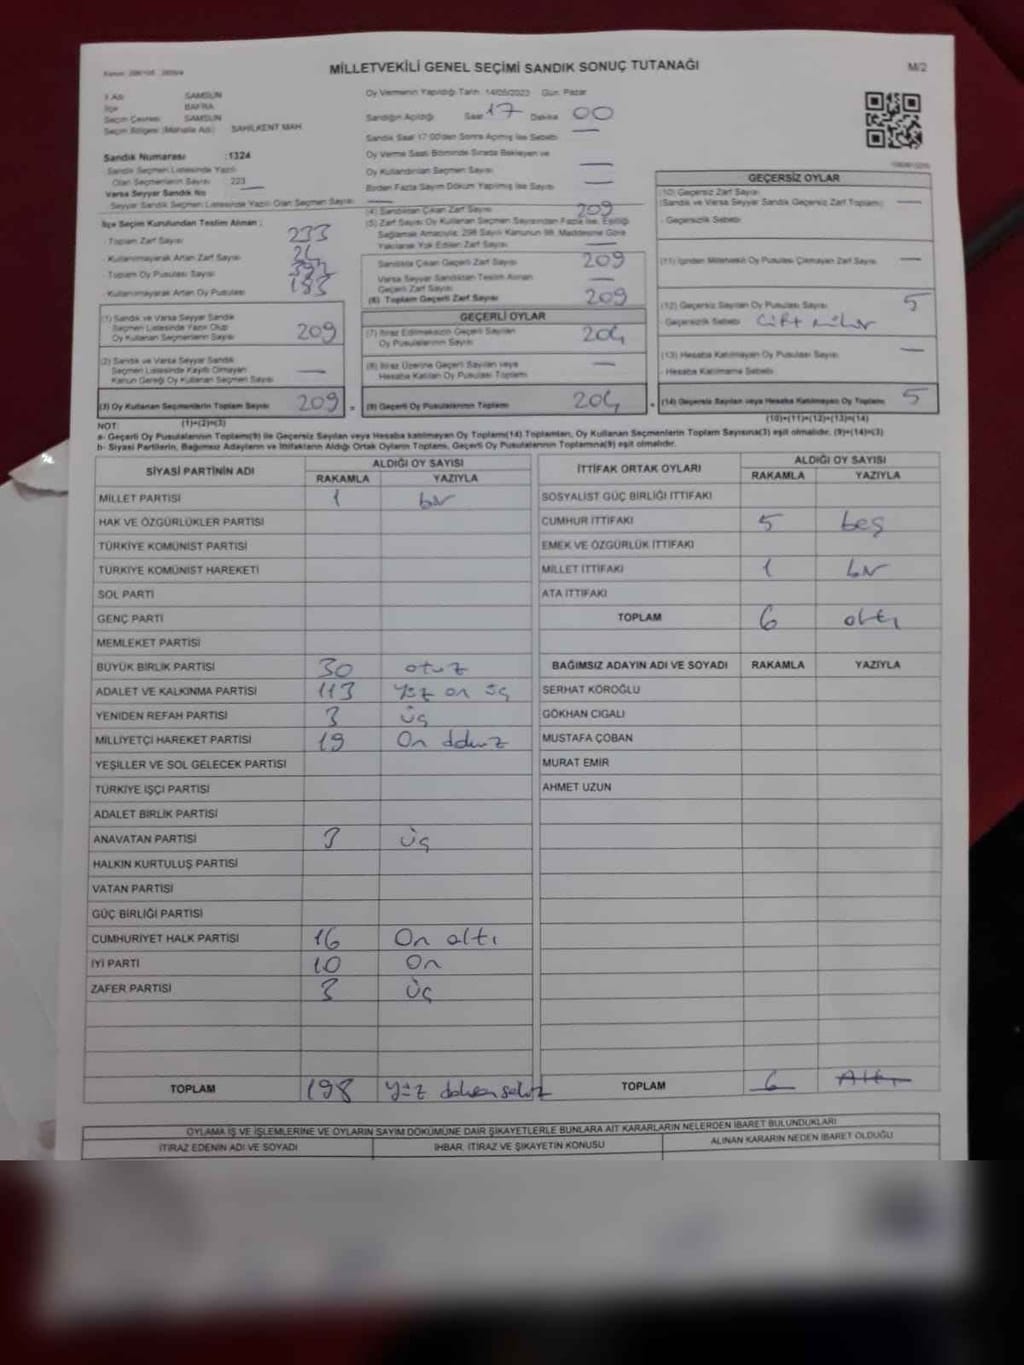 MİLLETVEKİLİ GENEL SEÇİMİ SANDIK SONUÇ TUTANAĞI
M/2
İl Adı SAMSUN
İlçe BAFRA
Seçim Çevresi SAMSUN
Seçim Bölgesi (Mahalle Adı) SAHİLKENT MAH.
Sandık Numarası :1324
Sandık Seçmen Listesinde Yazılı
Olan Seçmenlerin Sayısı : 223
Varsa Seyyar Sandık No
Seyyar Sandık Seçmen Listesinde Yazılı Olan Seçmen Sayısı
Oy Vermenin Yapıldığı Tarih: 14/05/2023 Gün: Pazar
Sandığın Açıldığı Saat 17 Dakika 00
Sandık Saat 17:00'den Sonra Açılmış İse Sebebi
Oy Verme Saati Bitiminde Sırada Bekleyen ve
Oy Kullandırılan Seçmen Sayısı
Birden Fazla Sayım Döküm Yapılmış İse Sayısı
İlçe Seçim Kurulundan Teslim Alınan :
- Toplam Zarf Sayısı 233
- Kullanılmayarak Artan Zarf Sayısı
- Toplam Oy Pusulası Sayısı
- Kullanılmayarak Artan Oy Pusulası
(1) Sandık ve Varsa Seyyar Sandık
Seçmen Listesinde Yazılı Olup
Oy Kullanan Seçmenlerin Sayısı 209
(2) Sandık ve Varsa Seyyar Sandık
Seçmen Listesinde Kayıtlı Olmayan
Kanun Gereği Oy Kullanan Seçmen Sayısı
(3) Oy Kullanan Seçmenlerin Toplam Sayısı 209
(1)+(2)=(3)
(4) Sandıktan Çıkan Zarf Sayısı 209
(5) Zarf Sayısı Oy Kullanan Seçmen Sayısından Fazla İse, Eşitliği
Sağlamak Amacıyla; 298 Sayılı Kanunun 98. Maddesine Göre
Yakılarak Yok Edilen Zarf Sayısı
Sandıkta Çıkan Geçerli Zarf Sayısı 209
Varsa Seyyar Sandıktan Teslim Alınan
Geçerli Zarf Sayısı
(6) Toplam Geçerli Zarf Sayısı 209
GEÇERLİ OYLAR
(7) İtiraz Edilmeksizin Geçerli Sayılan
Oy Pusulalarının Sayısı 204
(8) İtiraz Üzerine Geçerli Sayılan veya
Hesaba Katılan Oy Pusulası Toplamı
(9) Geçerli Oy Pusulalarının Toplamı 204
GEÇERSİZ OYLAR
(10) Geçersiz Zarf Sayısı
(Sandık ve Varsa Seyyar Sandık Geçersiz Zarf Toplamı)
- Geçersizlik Sebebi
(11) İçinden Milletvekili Oy Pusulası Çıkmayan Zarf Sayısı
(12) Geçersiz Sayılan Oy Pusulası Sayısı 5
- Geçersizlik Sebebi Çift mühür
(13) Hesaba Katılmayan Oy Pusulası Sayısı
- Hesaba Katılmama Sebebi
(14) Geçersiz Sayılan veya Hesaba Katılmayan Oy Toplamı 5
(10)+(11)+(12)+(13)=(14)
NOT:
a- Geçerli Oy Pusulalarının Toplamı(9) ile Geçersiz Sayılan veya Hesaba katılmayan Oy Toplamı(14) Toplamları, Oy Kullanan Seçmenlerin Toplam Sayısına(3) eşit olmalıdır. (9)+(14)=(3)
b- Siyasi Partilerin, Bağımsız Adayların ve İttifakların Aldığı Oyların Toplamı, Geçerli Oy Pusulalarının Toplamına(9) eşit olmalıdır.
SİYASİ PARTİNİN ADI ALDIĞI OY SAYISI
RAKAMLA YAZIYLA
MİLLET PARTİSİ 1 bir
HAK VE ÖZGÜRLÜKLER PARTİSİ
TÜRKİYE KOMÜNİST PARTİSİ
TÜRKİYE KOMÜNİST HAREKETİ
SOL PARTİ
GENÇ PARTİ
MEMLEKET PARTİSİ
BÜYÜK BİRLİK PARTİSİ 30 otuz
ADALET VE KALKINMA PARTİSİ 113 yüz on üç
YENİDEN REFAH PARTİSİ 3 üç
MİLLİYETÇİ HAREKET PARTİSİ 19 On dokuz
YEŞİLLER VE SOL GELECEK PARTİSİ
TÜRKİYE İŞÇİ PARTİSİ
ADALET BİRLİK PARTİSİ
ANAVATAN PARTİSİ 3 üç
HALKIN KURTULUŞ PARTİSİ
VATAN PARTİSİ
GÜÇ BİRLİĞİ PARTİSİ
CUMHURİYET HALK PARTİSİ 16 On altı
İYİ PARTİ 10 On
ZAFER PARTİSİ 3 üç
TOPLAM 198 yüz doksan sekiz
İTTİFAK ORTAK OYLARI ALDIĞI OY SAYISI
RAKAMLA YAZIYLA
SOSYALİST GÜÇ BİRLİĞİ İTTİFAKI
CUMHUR İTTİFAKI 5 beş
EMEK VE ÖZGÜRLÜK İTTİFAKI
MİLLET İTTİFAKI 1 bir
ATA İTTİFAKI
TOPLAM 6 altı
BAĞIMSIZ ADAYIN ADI VE SOYADI RAKAMLA YAZIYLA
SERHAT KÖROĞLU
GÖKHAN CIGALI
MUSTAFA ÇOBAN
MURAT EMİR
AHMET UZUN
TOPLAM 6 Altı
OYLAMA İŞ VE İŞLEMLERİNE VE OYLARIN SAYIM DÖKÜMÜNE DAİR ŞİKAYETLERLE BUNLARA AİT KARARLARIN NELERDEN İBARET BULUNDUKLARI
İTİRAZ EDENİN ADI VE SOYADI İHBAR, İTİRAZ VE ŞİKAYETİN KONUSU ALINAN KARARIN NEDEN İBARET OLDUĞU